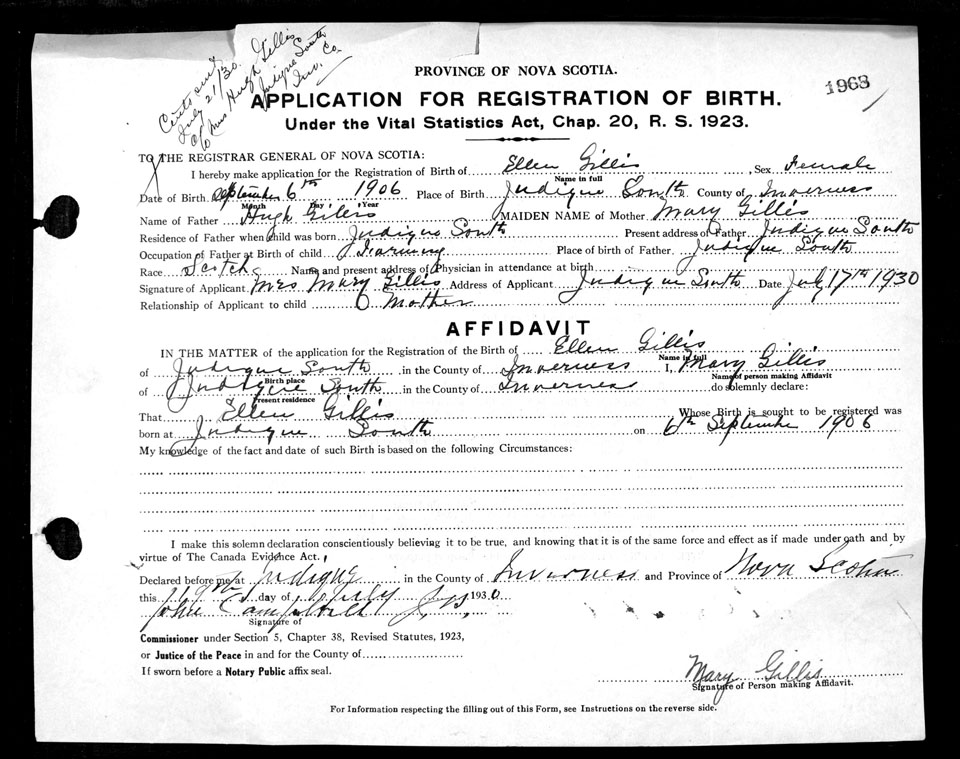 Certs sent
July 21/30.
c/o Mrs Hugh Gillis
Judique South
Inv. Co.
1963
PROVINCE OF NOVA SCOTIA.
APPLICATION FOR REGISTRATION OF BIRTH.
Under the Vital Statistics Act, Chap. 20, R. S. 1923.
TO THE REGISTRAR GENERAL OF NOVA SCOTIA:
I hereby make application for the Registration of Birth of Ellen Gillis, Sex Female
Name in full
Date of Birth September 6th 1906 Place of Birth Judique South County of Inverness
Month Day Year
Name of Father Hugh MAIDEN NAME of Mother Mary Gillis
Residence of Father when child was born Judique South Present address of Father Judique South
Occupation of Father at Birth of child Farming Place of birth of Father Judique South
Race Scotch Name and present address of Physician in attendance at birth
Signature of Applicant Mrs Mary Gillis Address of Applicant Judique South Date July 17th 1930
Relationship of Applicant to child Mother
AFFIDAVIT
IN THE MATTER of the application for the Registration of the Birth of Ellen Gillis
Name in full
of Judique South in the County of Inverness I, Mary Gillis
Birth place Name of person making Affidavit
of Judique South in the County of Inverness do solemnly declare:
Present residence
That Ellen Gillis Whose Birth is sought to be registered was
born at Judique South on 6th September 1906
My knowledge of the fact and date of such Birth is based on the following Circumstances:
I make this solemn declaration conscientiously believing it to be true, and knowing that it is of the same force and effect as if made under oath and by
virtue of The Canada Evidence Act.
Declared before me at Judique in the County of Inverness and Province of Nova Scotia
this day of July 1930
John Campbell J.P.
Signature of
Commissioner under Section 5, Chapter 38, Revised Statutes, 1923,
or Justice of the Peace in and for the County of
If sworn before a Notary Public affix seal.
Mary Gillis
Signature of Person making Affidavit.
For Information respecting the filling out of this Form, see Instructions on the reverse side.